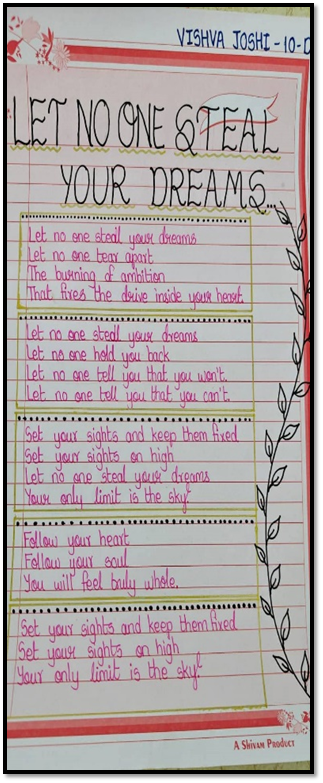 VISHVA JOSHI - 10-D
LET NO ONE STEAL
YOUR DREAMS...
Let no one steal your dreams
Let no one tear apart
The burning of ambition
That fires the drive inside your heart.
Let no one steal your dreams
Let no one hold you back
Let no one tell you that you won't.
Let no one tell you that you can't.
Set your sights and keep them fixed
Set your sights on high
Let no one steal your dreams
Your only limit is the sky!
Follow your heart
Follow your soul
You will feel truly whole.
Set your sights and keep them fixed
Set your sights on high
Your only limit is the sky!
A SHIVAM PRODUCT